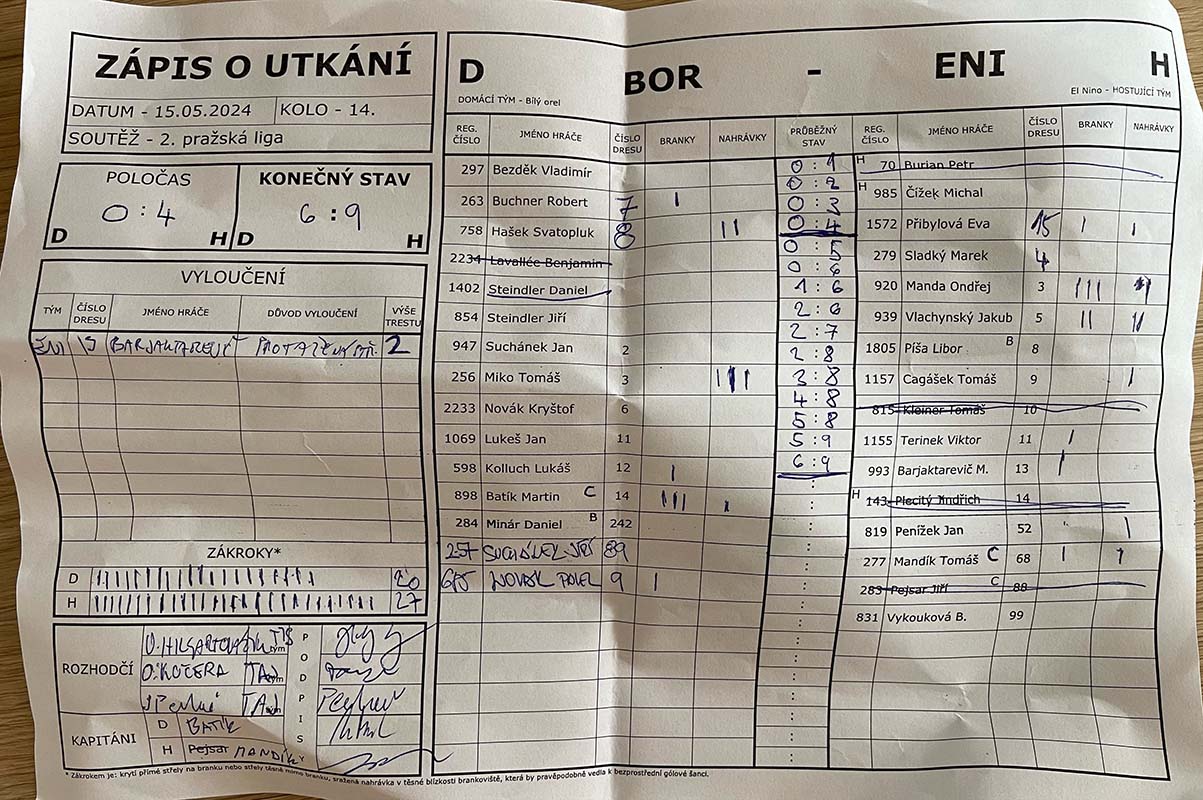 ZÁPIS O UTKÁNÍ
DATUM - 15.05.2024 KOLO - 14.
SOUTĚŽ - 2. pražská liga
POLOČAS KONEČNÝ STAV
0 : 4 6 : 9
D H D H
VYLOUČENÍ
TÝM ČÍSLO DRESU JMÉNO HRÁČE DŮVOD VYLOUČENÍ VÝŠE TRESTU
ENI 2
ZÁKROKY*
D 20
H 27
ROZHODČÍ
PODPIS
O. KUČERA
KAPITÁNI
D BATÍK
H Pejsar MANDÍK
D BOR - ENI H
DOMÁCÍ TÝM - Bílý orel El Nino - HOSTUJÍCÍ TÝM
REG. ČÍSLO JMÉNO HRÁČE ČÍSLO DRESU BRANKY NAHRÁVKY PRŮBĚŽNÝ STAV REG. ČÍSLO JMÉNO HRÁČE ČÍSLO DRESU BRANKY NAHRÁVKY
297 Bezděk Vladimír
263 Buchner Robert 7 I
758 Hašek Svatopluk 8 II
2234 Lavallée Benjamin
1402 Steindler Daniel
854 Steindler Jiří
947 Suchánek Jan 2
256 Miko Tomáš 3 III
2233 Novák Kryštof 6
1069 Lukeš Jan 11
598 Kolluch Lukáš 12 I
898 Batík Martin C 14 III I
284 Minár Daniel B 242
257 SUCHÁNEK JIŘÍ 89
NOVÁK PAVEL 9 I
0 : 1
0 : 2
0 : 3
0 : 4
0 : 5
0 : 6
1 : 6
2 : 6
2 : 7
2 : 8
3 : 8
4 : 8
5 : 8
5 : 9
6 : 9
H 70 Burian Petr
H 985 Čížek Michal
1572 Přibylová Eva 15 I I
279 Sladký Marek 4
920 Manda Ondřej 3 III
939 Vlachynský Jakub 5 II II
1805 Píša Libor B 8
1157 Cagášek Tomáš 9 I
815 Kleiner Tomáš 10
1155 Terinek Viktor 11 I
993 Barjaktarevič M. 13 I
H 143 Plecitý Jindřich 14
819 Penížek Jan 52 I
277 Mandík Tomáš C 68 I I
283 Pejsar Jiří C 88
831 Vykouková B. 99
* Zákrokem je: krytí přímé střely na branku nebo střely těsně mimo branku, sražená nahrávka v těsné blízkosti brankoviště, která by pravěpodobně vedla k bezprostřední gólové šanci.